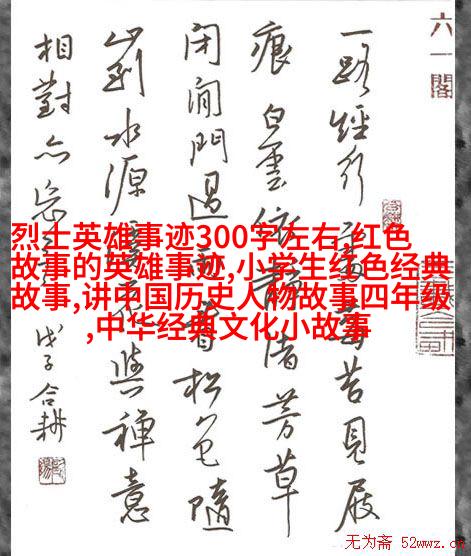 六一閣
一路經行處莓苔見屐
痕白雲依靜渚芳草
閉閒門過雨看松色隨
山到水源溪花與禪意
相對亦忘言 戊子合耕
烈士英雄事迹300字左右,红色
故事的英雄事迹,小学生红色经典
故事,讲中国历史人物故事四年级
,中华经典文化小故事
无为斋 52wwz.cn